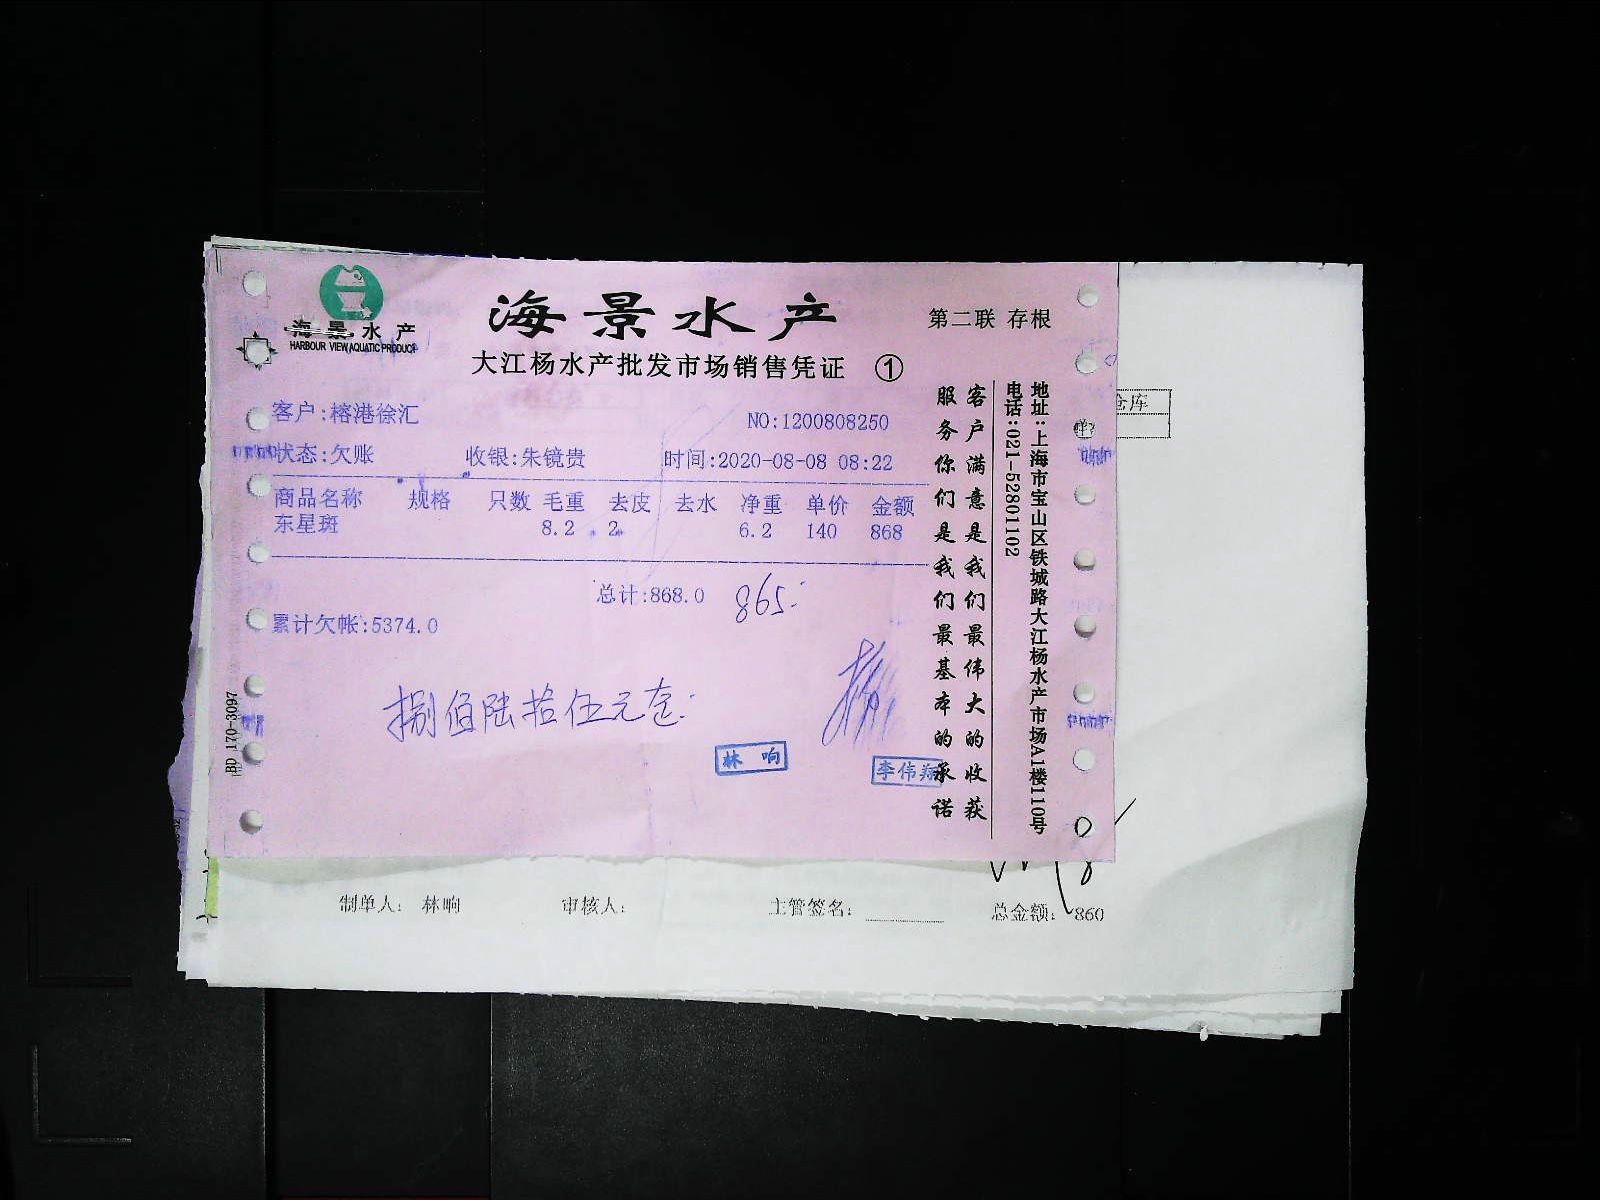 海景水产
HARBOUR VIEW AQUATIC PRODUCT
海景水产
第二联 存根
大江杨水产批发市场销售凭证 ①
客户:榕港徐汇
NO:1200808250
状态:欠账 收银:朱镜贵 时间:2020-08-08 08:22
商品名称 规格 只数 毛重 去皮 去水 净重 单价 金额
东星斑 8.2 2 6.2 140 868
总计:868.0 865
累计欠帐:5374.0
捌佰陆拾伍元
林响
李伟翔
客户满意是我们最伟大的收获
服务你们是我们最基本的承诺
地址:上海市宝山区铁城路大江杨水产市场A1楼110号
电话:021-52801102
BD 170-3097
仓库
制单人: 林响 审核人: 主管签名: 总金额: 860